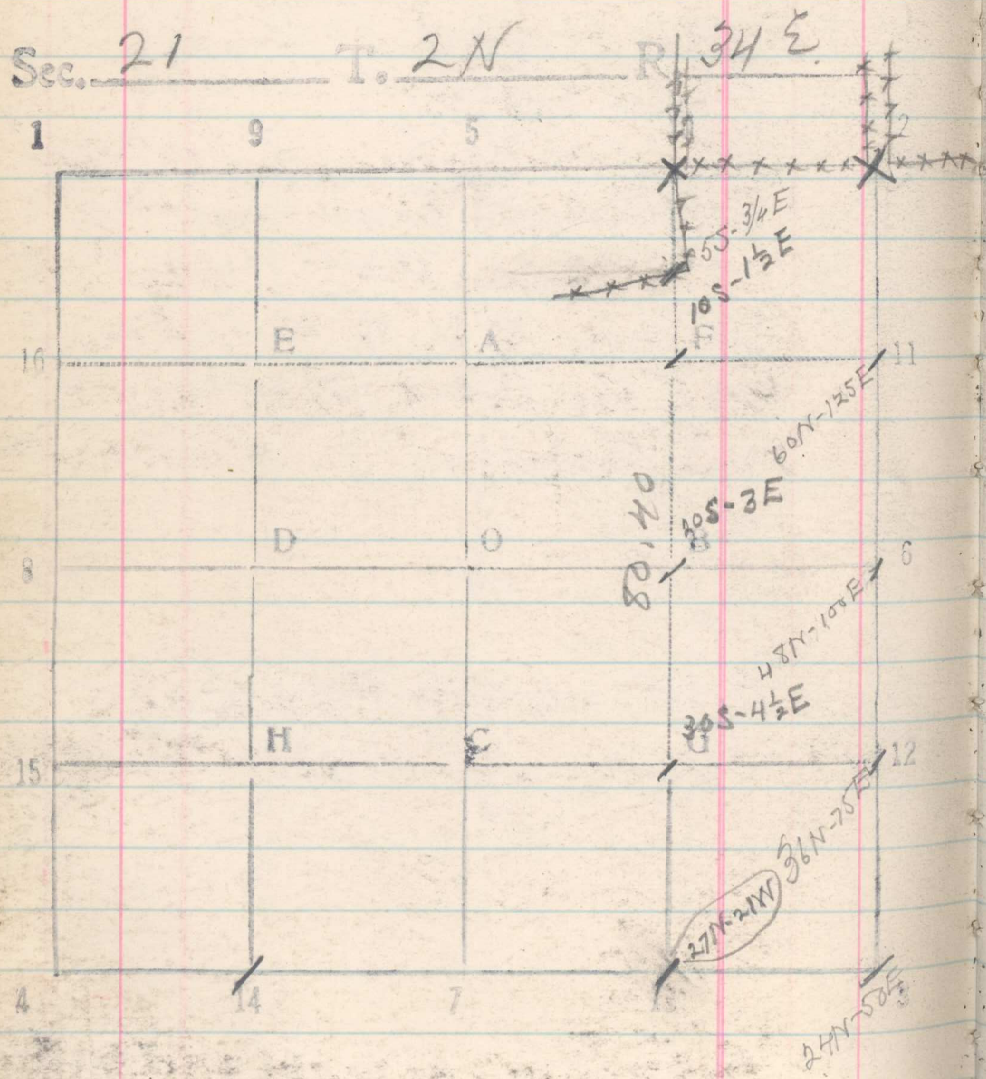 Sec. 21 T. 2N R. 34 E.
1 9 5 2
5S-3/4E
10S-1½E
E A F
16 11
60N-125E
80.40
30S-3E
D O B
8 6
48N-100E
30S-4½E
H C G
15 12
36N-75E
27N-21W
4 14 7 3
24N-50E